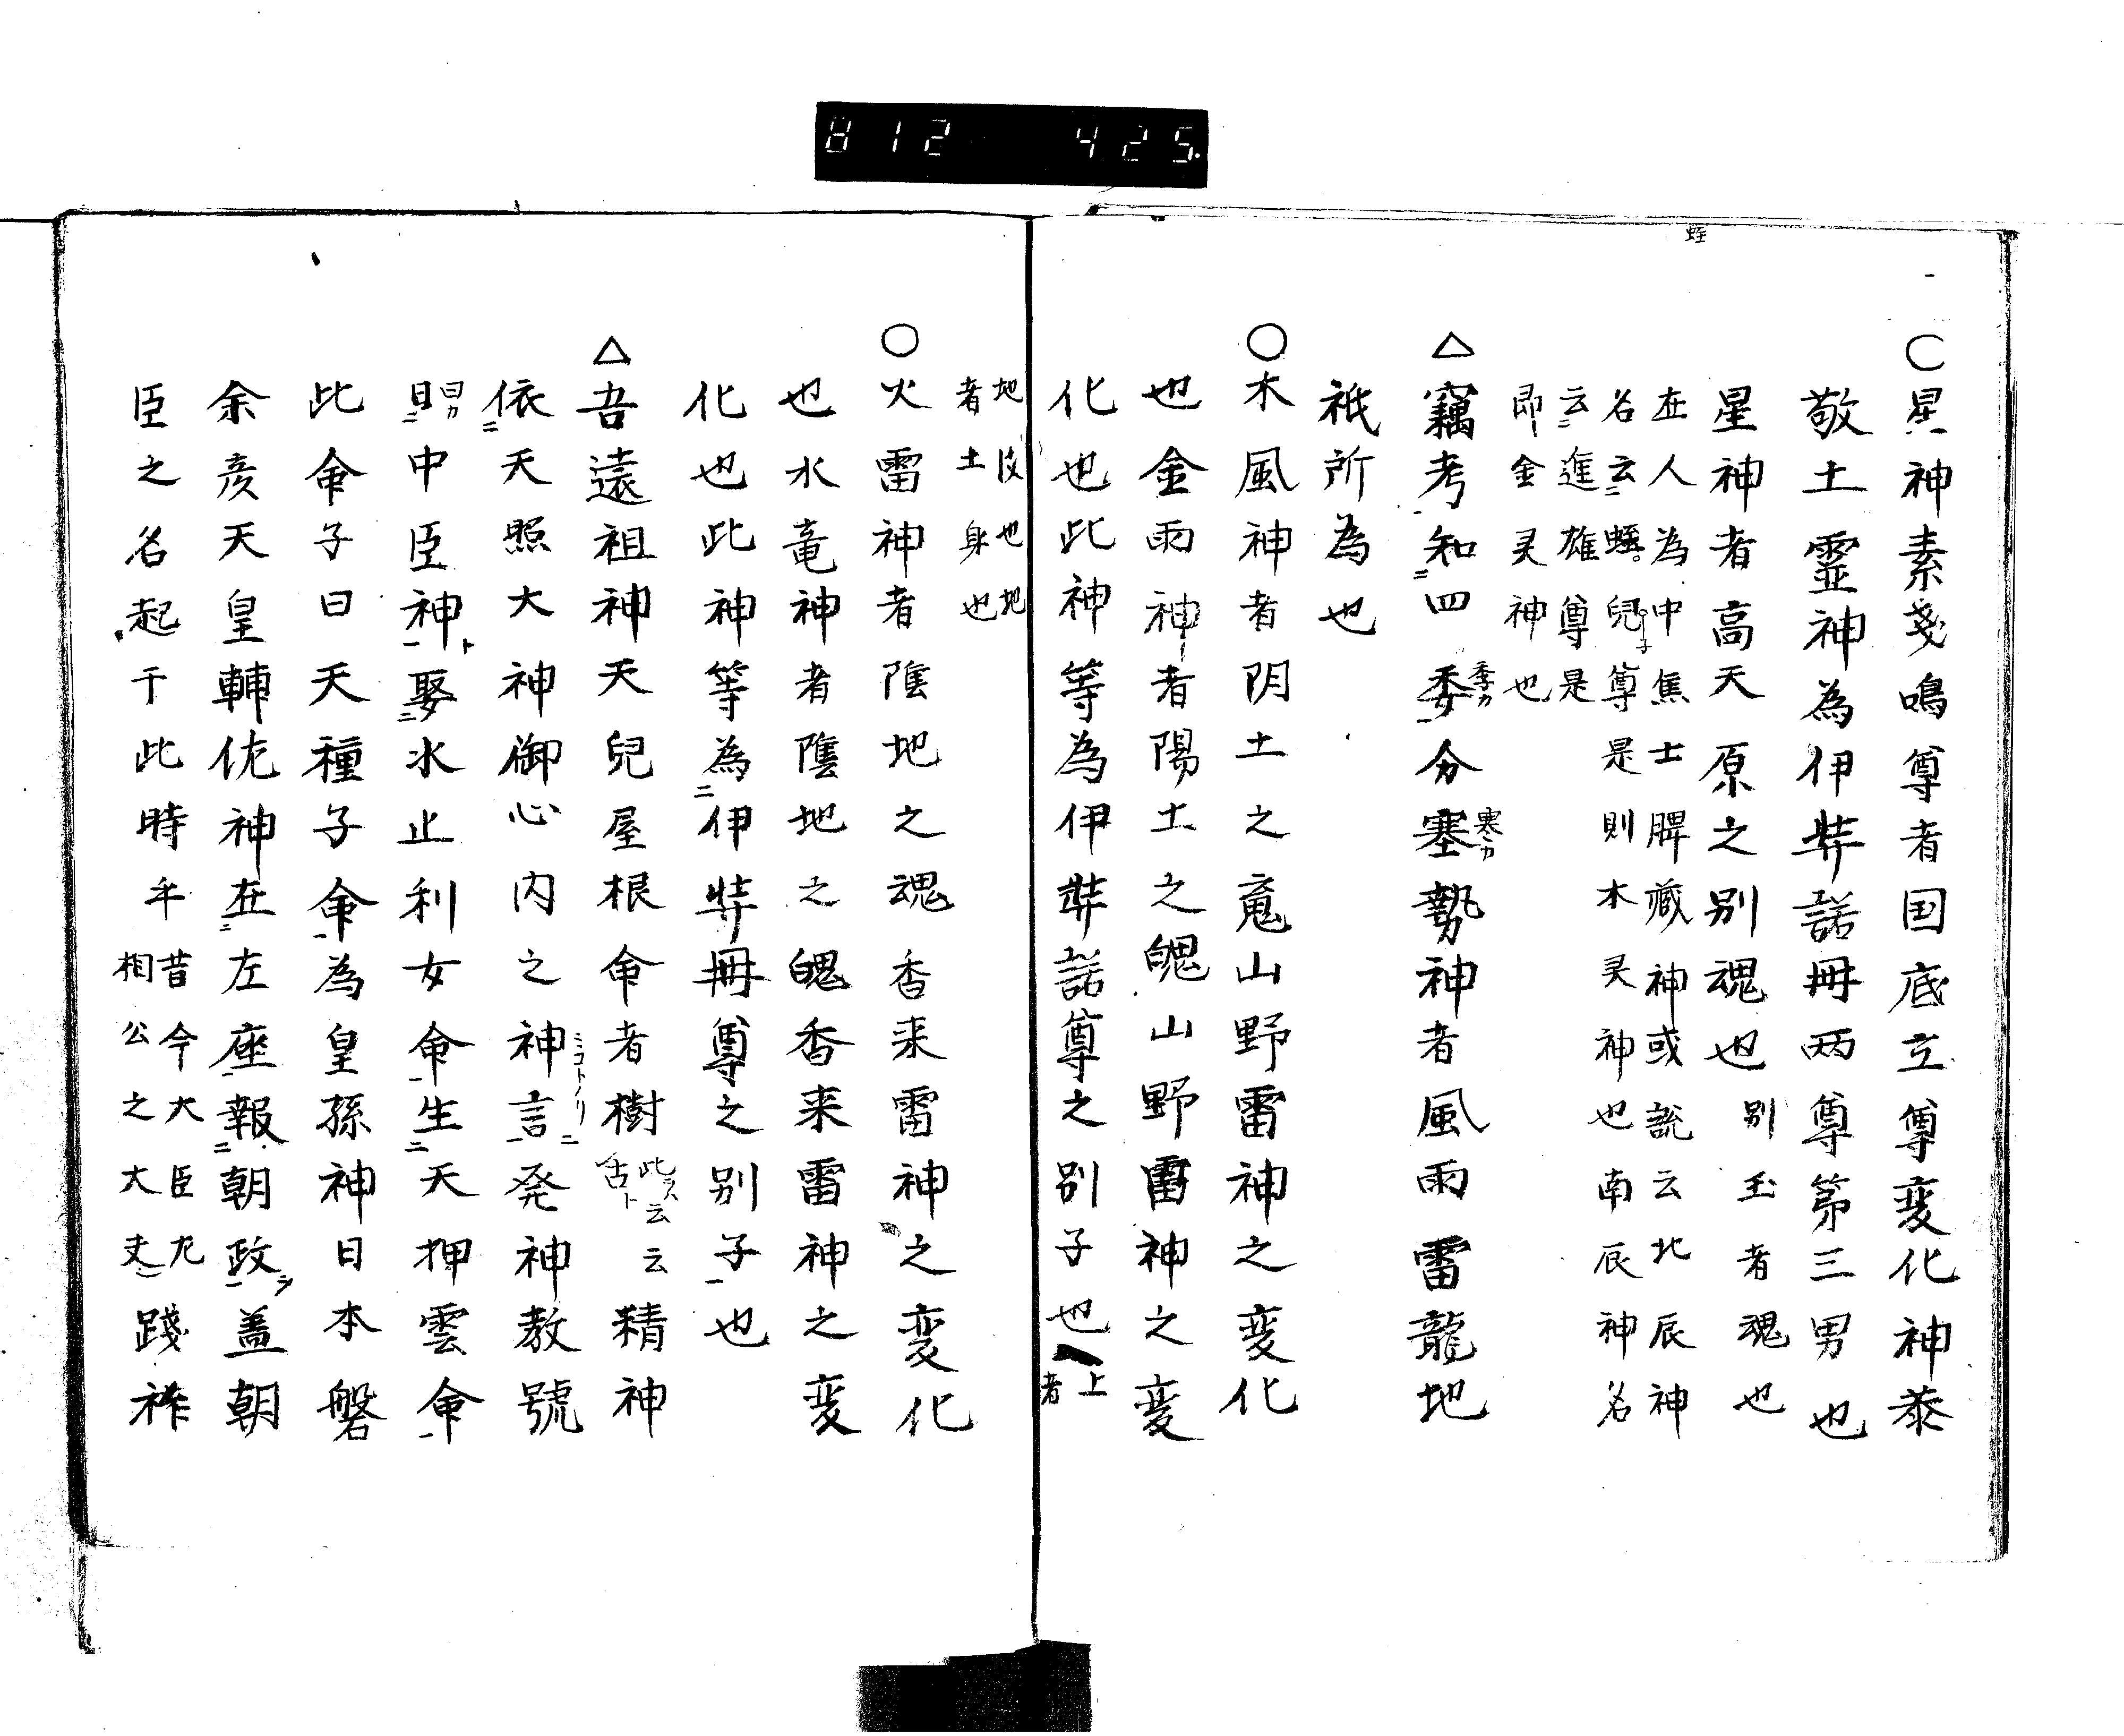 812 425
蛭
○星神素戔鳴尊者国底立尊変化神泰
敬土霊神為伊弉諾冊两尊第三男也
星神者高天原之別魂也 別玉者魂也
在人為中焦士脾蔵神或説云北辰神
名云蛭児尊是則木灵神也南辰神名
云進雄尊是
即金灵神也
△竊考知四委分塞勢神者風雨雷龍地
季カ
寒カ
祇所為也
○木風神者阴土之魂山野雷神之変化
也金雨神者陽土之魄山野雷神之変
化也此神等為伊弉諾尊之別子也 上者
地没也地
者土身也
○火雷神者陰地之魂香来雷神之変化
也水竜神者陰地之魄香来雷神之変
化也此神等為伊弉冊尊之別子也
△吾遠祖神天兒屋根命者樹 此ヲハ云云舌ト 精神
依天照大神御心内之神言発神教號
ミコトノリ
曰カ
日中臣神娶氷止利女命生天押雲命
此命子曰天種子命為皇孫神日本磐
余彦天皇輔佐神在左座報朝政盖朝
臣之名起于此時乎 昔今大臣九 相公之大夫 踐祚